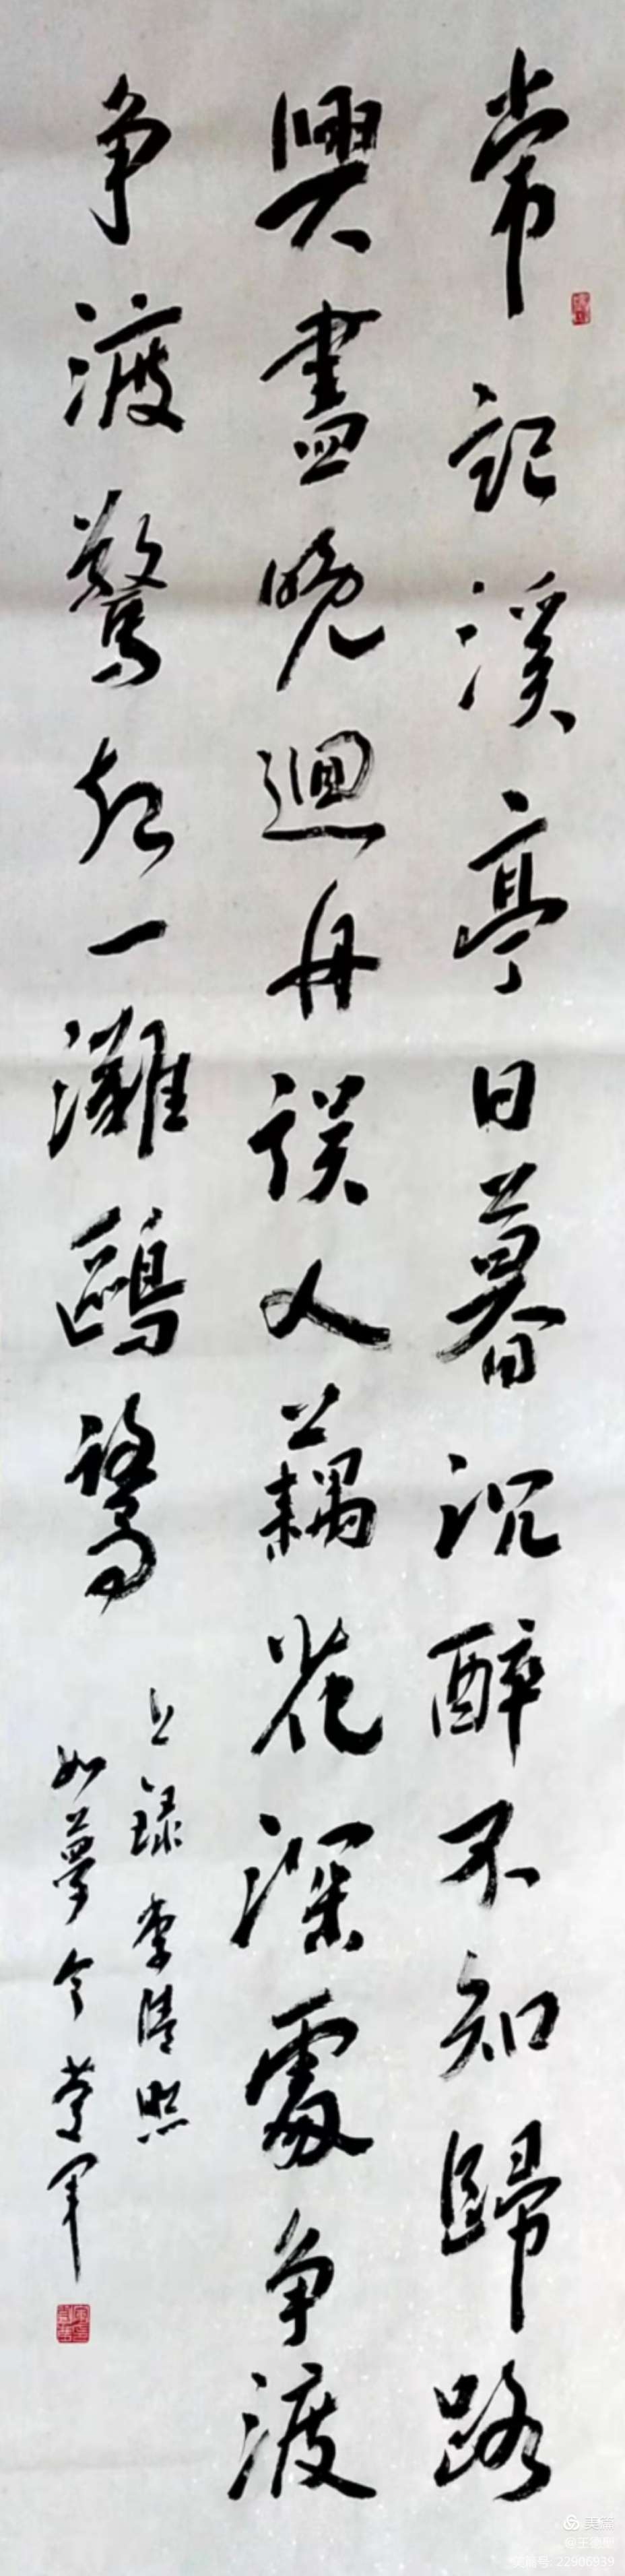 常記溪亭日暮沉醉不知歸路
興盡晚迴舟誤入藕花深處争渡
争渡驚起一灘鷗鷺
上録李清照
如夢令 军
美篇
美篇号: 22906939